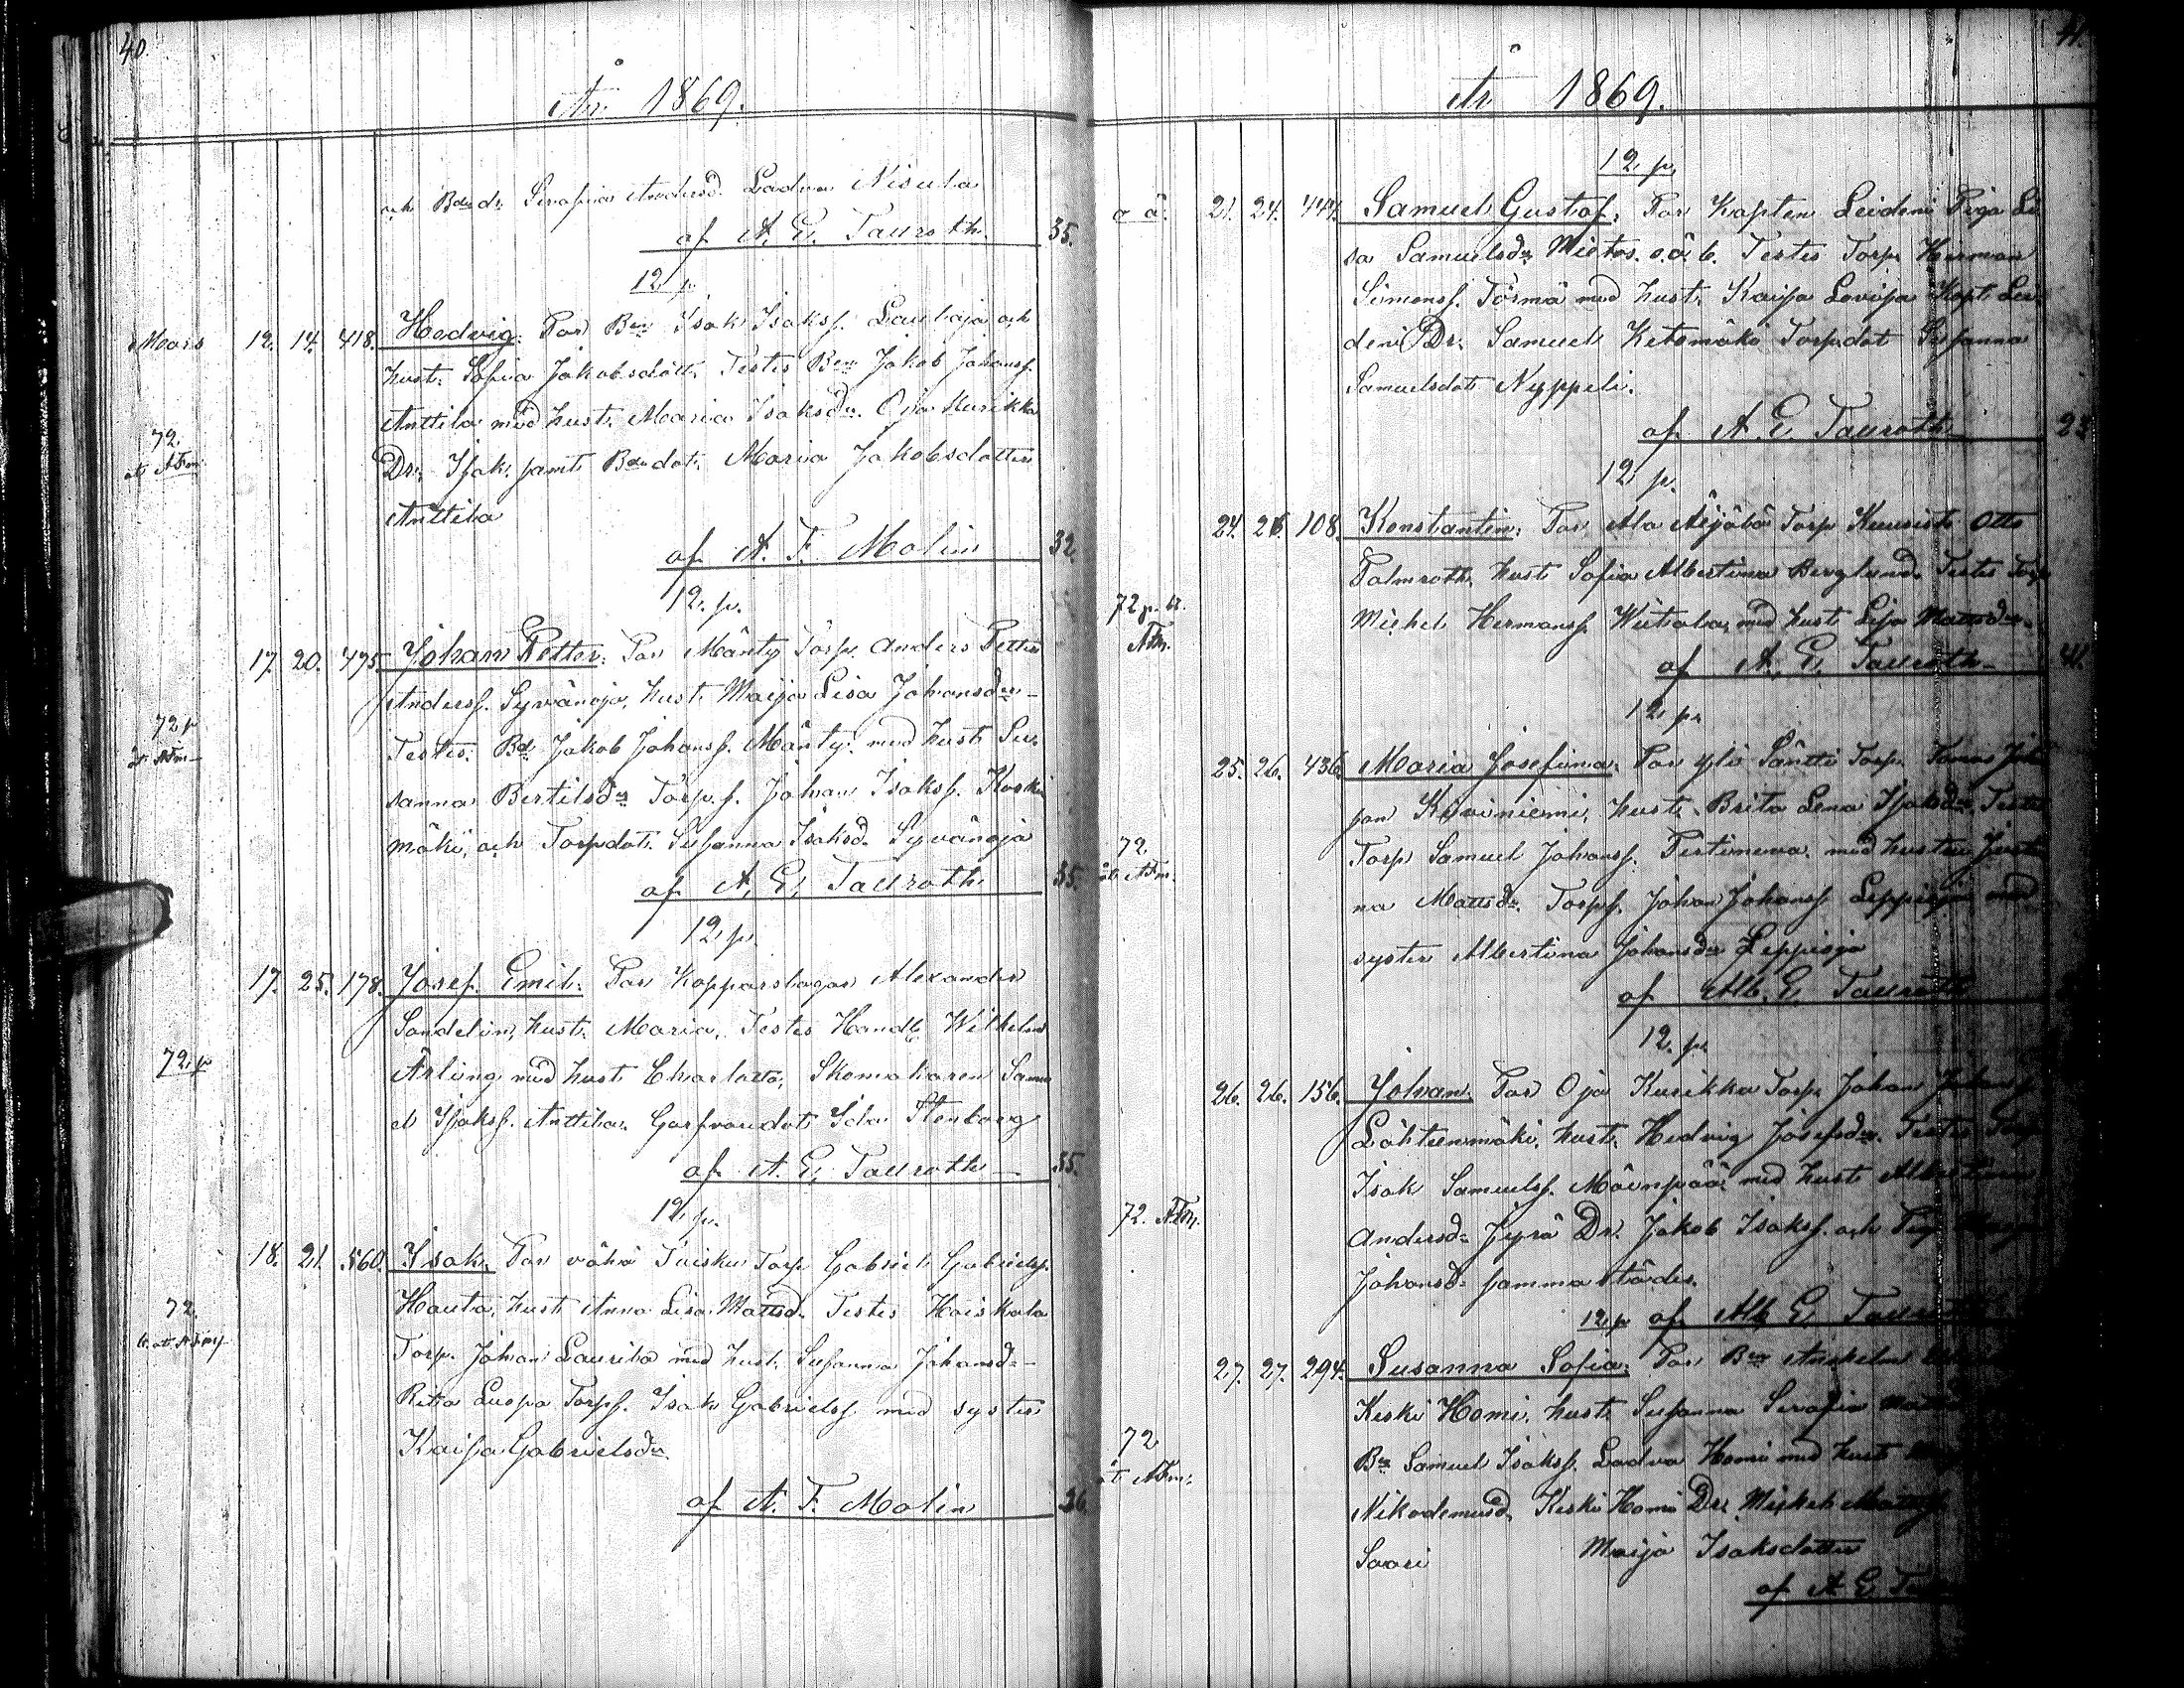 40.
År 1869.
och Bdr dr Serafina Andersd. Ladva Nisula
af A. E. Tauroth. 35.
12 p.
Mars 12. 14. 418. Hedvig. Par Bn Isak Isakss. Laulaja och
hust. Sofia Jakobsdott. Testes Bn Jakob Johanss.
Anttila med hust. Maria Isaksdr. Oja Kurikka
72.
Dr. Isak samt Bdedot. Maria Jakobsdotter
Anttila
af A. F. Molin 32.
12. p.
17. 20. 495. Johan Petter. Par Mänty Torp. Anders Petter
Anderss. Syvänoja, hust. Maija Lisa Johansdr
72 p
Testes. Bd. Jakob Johanss. Mänty. med hust. Su-
sanna Bertilsdr Torp.s. Johan Isakss. Koski
mäki, och Torpdot. Susanna Isaksd. Syvänoja
af A. E. Tauroth 35.
12. p.
17. 25. 178. Josef Emil. Par Kopparslagar Alexander
Sandelin, hust. Maria. Testes Handl. Wilhelm
72. p
Ärling med hust. Charlotta, Skomakaren Samu
el Isakss. Anttila. Garfvaredot. Ida Stenberg
af A. E. Tauroth 35.
12. p.
18. 21. 560. Isak. Par vähä Tuisku Torp. Gabriel Gabrielss.
72.
Hauta, hust. Anna Lisa Mattsd. Testes Koiskala
Torp. Johan Laurila med hust. Susanna Johansd.
Rita Luopa Torps. Isak Gabrielss. med syster
Kaisa Gabrielsdr.
af A. F. Molin 26.
41.
År 1869.
12 p.
o ä. 21. 24. 444. Samuel Gustaf. Par Kapten Leideni Piga Li
sa Samuelsdr Mietos. o.ä. b. Testes Torp. Herman
Simonss. Törmä med hust. Kaisa Lovisa Kapt. Lei
deni Dr. Samuel Ketomäki Torpdot. Susanna
Samuelsdot. Nyppeli.
af A. E. Tauroth 23
12 p.
24. 26. 108. Konstantin. Par Ala Äijälä Torp. Kuusisto Otto
Palmroth, hust. Sofia Albertina Berglund. Testes Torp
72 p.
Michel Hermanss. Wiitala, med hust. Lisa Mattsdr.
af A. E. Tauroth 41.
12 p.
25. 26. 436. Maria Josefina. Par yli Säntti Torp. Tomas Joh
san Koviniemi, hust. Brita Lena Isaksdr. Testes
72.
Torp. Samuel Johanss. Pertineva. med hustru Justi
na Mattsdr. Torps. Johan Johanss. Leppioja med
syster Albertina Johansdr Leppioja
af Alb. E. Tauroth
12. p.
26. 26. 156. Johan. Par Oja Kurikka Torp. Johan
Lähteenmäki, hust. Hedvig Josefsdr. Testes Torp.
Isak Samuelss. Mäenpää, med hust. Albertina
72. AFm.
Andersd. Jyrä Dr. Jakob Isakss. och Pig.
Johansd. sammastädes.
12. p af Alb. E. Tauroth
27. 27. 294. Susanna Sofia. Par Bn Anshelm
Keski Homi, hust. Susanna Serafia
72
Bn Samuel Isakss. Ladva Homi med hust.
Nikodemusd. Keski Homi Dr. Michel
Saari Maija Isaksdotter
af A. E. Tauroth